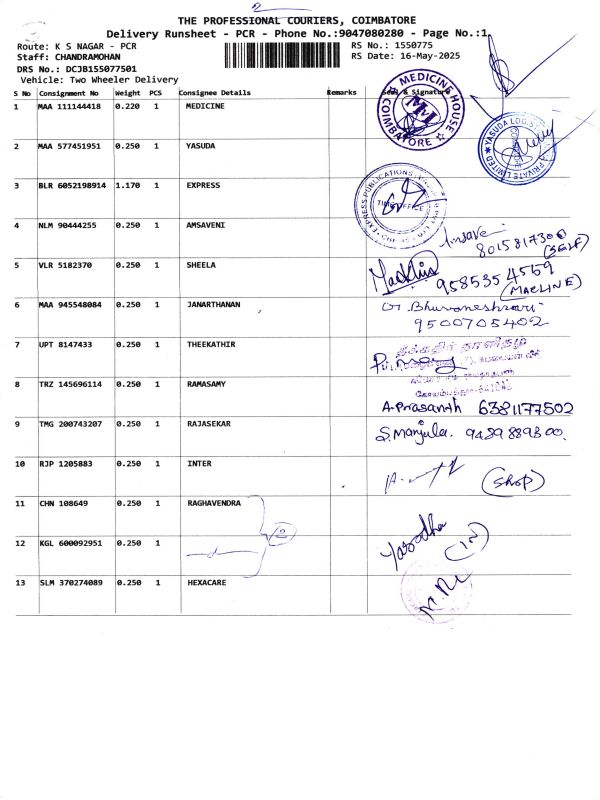 2
THE PROFESSIONAL COURIERS, COIMBATORE
Delivery Runsheet - PCR - Phone No.:9047080280 - Page No.:1
Route: K S NAGAR - PCR
RS No.: 1550775
Staff: CHANDRAMOHAN
RS Date: 16-May-2025
DRS No.: DCJB155077501
Vehicle: Two Wheeler Delivery
S No Consignment No Weight PCS Consignee Details Remarks Seal & Signature
1 MAA 111144418 0.220 1 MEDICINE
MEDICINE HOUSE COIMBATORE
2 MAA 577451951 0.250 1 YASUDA
YASUDA PRIVATE LIMITED
3 BLR 6052198914 1.170 1 EXPRESS
EXPRESS PUBLICATIONS
4 NLM 90444255 0.250 1 AMSAVENI
Amsave 8015817300
(SELF)
5 VLR 5182370 0.250 1 SHEELA
9585354569
(MACLINE)
6 MAA 945548084 0.250 1 JANARTHANAN
Bhuvaneshwari
9500705402
7 UPT 8147433 0.250 1 THEEKATHIR
8 TRZ 145696114 0.250 1 RAMASAMY
A. Prasanth 6381177502
9 TMG 200743207 0.250 1 RAJASEKAR
S. Manjula. 9489889300.
10 RJP 1205883 0.250 1 INTER
(Shop)
11 CHN 108649 0.250 1 RAGHAVENDRA
2
Yasodha (IN)
12 KGL 600092951 0.250 1
13 SLM 370274089 0.250 1 HEXACARE